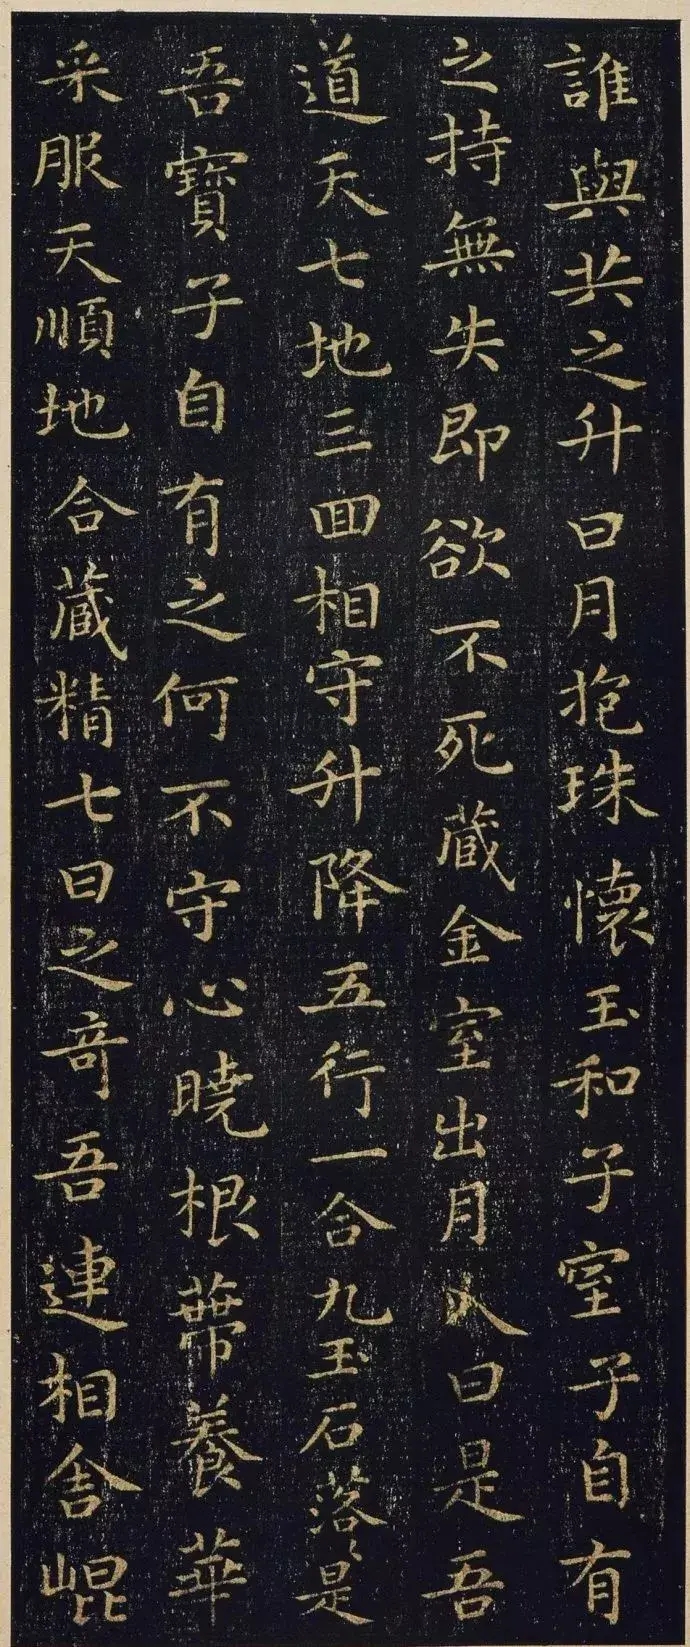 誰與共之升日月抱珠懷玉和子室子自有
之持無失即欲不死藏金室出月入日是吾
道天七地三回相守升降五行一合九玉石落〻是
吾寶子自有之何不守心曉根蔕養華
采服天順地合藏精七日之奇吾連相舎崐